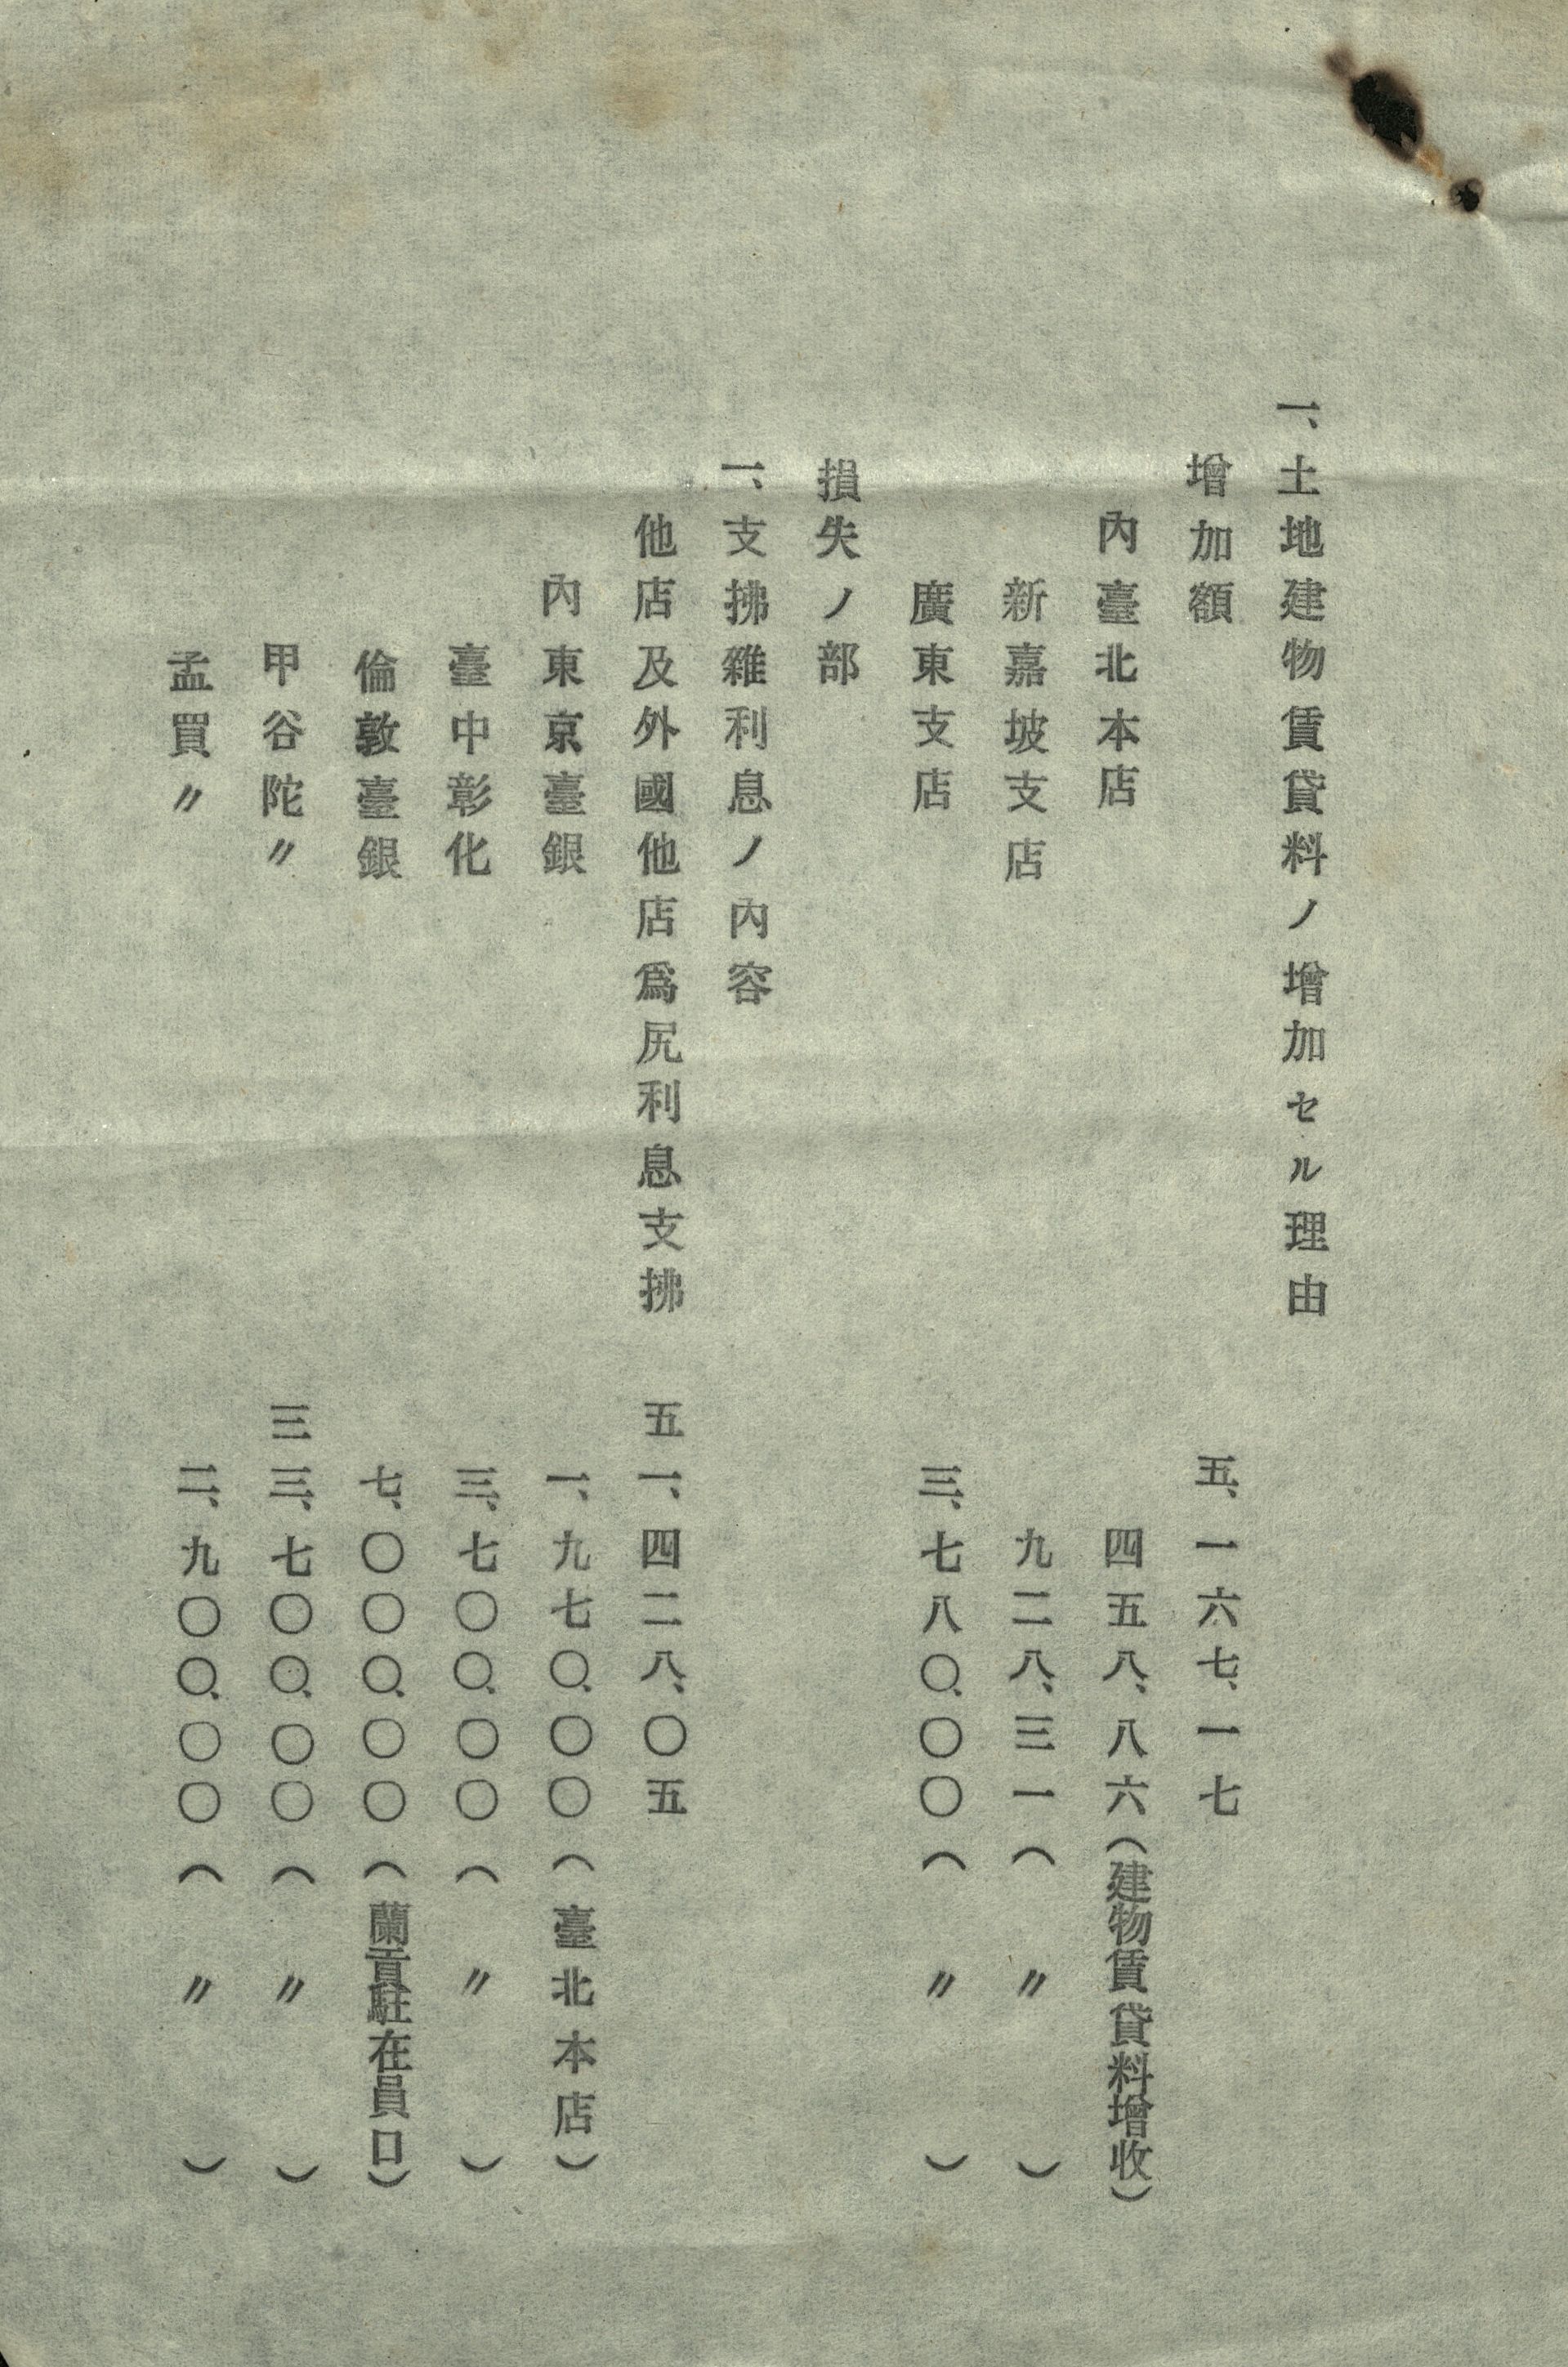 一、土地建物賃貸料ノ增加セル理由
增加額 五、一六七、一七
內臺北本店 四五八、八六(建物賃貸料增收)
新嘉坡支店 九二八、三一(〃)
廣東支店 三、七八〇、〇〇(〃)
損失ノ部
一、支拂雜利息ノ內容
他店及外國他店爲尻利息支拂 五一、四二八、〇五
內東京臺銀 一、九七〇、〇〇(臺北本店)
臺中彰化 三、七〇〇、〇〇(〃)
倫敦臺銀 七、〇〇〇、〇〇(蘭貢駐在員口)
甲谷陀〃 三三、七〇〇、〇〇(〃)
孟買〃 二、九〇〇、〇〇(〃)